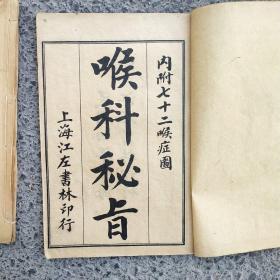 內附七十二喉症圖
喉科秘旨
上海江左書林印行